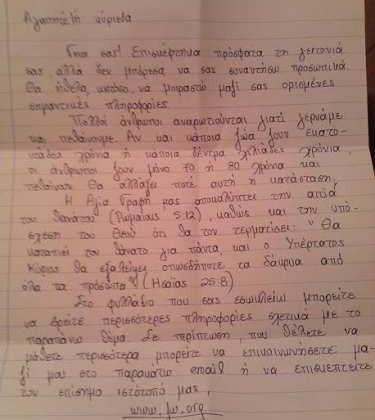 Αγαπητή κύρια
Γεια σας! Επισκέφτηκα πρόσφατα τη γειτονιά
σας αλλά δεν μπόρεσα να σας συναντήσω προσωπικά.
Θα ήθελα, ωστόσο, να μοιραστώ μαζί σας ορισμένες
σημαντικές πληροφορίες.
Πολλοί άνθρωποι αναρωτιούνται γιατί γερνάμε
και πεθαίνουμε. Αν και κάποια ζώα ζουν εκατο-
ντάδες χρόνια ή κάποια δέντρα χιλιάδες χρόνια,
οι άνθρωποι ζουν μόνο 70 ή 80 χρόνια και
πεθαίνουν. Θα αλλάξει ποτέ αυτή η κατάσταση;
Η Αγία Γραφή μας αποκαλύπτει την αιτία
του θανάτου (Ρωμαίους 5:12), καθώς και την υπό-
σχεση του Θεού ότι θα τον τερματίσει: "Θα
καταπιεί τον θάνατο για πάντα, και ο Υπέρτατος
Κύριος θα εξαλείψει οπωσδήποτε τα δάκρυα από
όλα τα πρόσωπα" (Ησαΐας 25:8)
Στο φυλλάδιο που σας εσωκλείω μπορείτε
να βρείτε περισσότερες πληροφορίες σχετικά με το
παραπάνω θέμα. Σε περίπτωση που θέλετε να
μάθετε περισσότερα μπορείτε να επικοινωνήσετε μα-
ζί μας στο παρακάτω email ή να επισκεπτείτε
τον επίσημο ιστότοπό μας,
www.jw.org